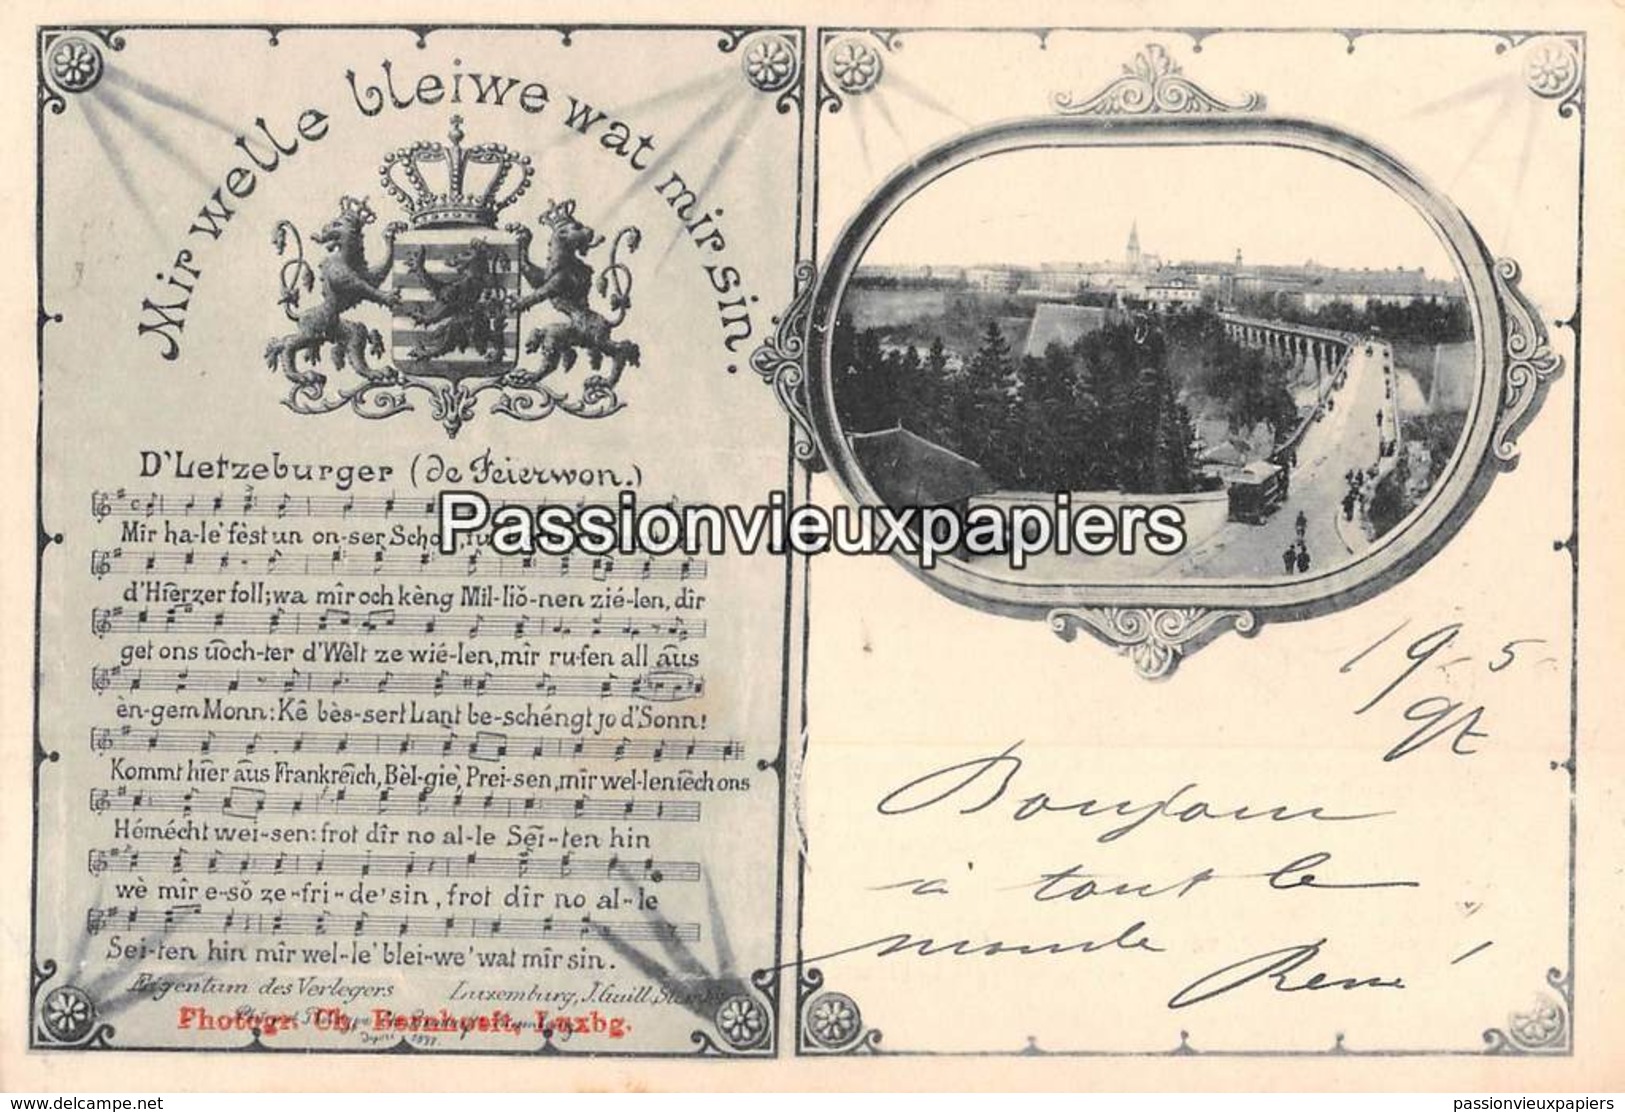 Mir welle bleiwe wat mir sin.
D'Letzeburger (de Feierwon.)
Mir ha-le' fèst un on-ser
d'Hierzer foll; wa mîr och kèng Mil-liŏ-nen zié-len, dîr
get ons ūoch-ter d'Wèlt ze wié-len, mîr ru-fen all aūs
èn-gem Monn: Kê bès-sert Lant be-schéngt jo d'Sonn!
Kommt hīer aūs Frankrēich, Bèl-gie', Prei-sen, mîr wel-len īech ons
Hémécht wei-sen: frot dîr no al-le Sēi-ten hin
wè mîr e-sŏ ze-fri-de' sin, frot dîr no al-le
Sei-ten hin mîr wel-le' blei-we' wat mîr sin.
Eigentum des Verlegers Luxemburg, J. Guill.
Photogr. Ch. Bernhoeft, Luxbg.
1897
Passionvieuxpapiers
19-5-
97
Bonjour
à tout le
monde
René
www.delcampe.net
passionvieuxpapiers